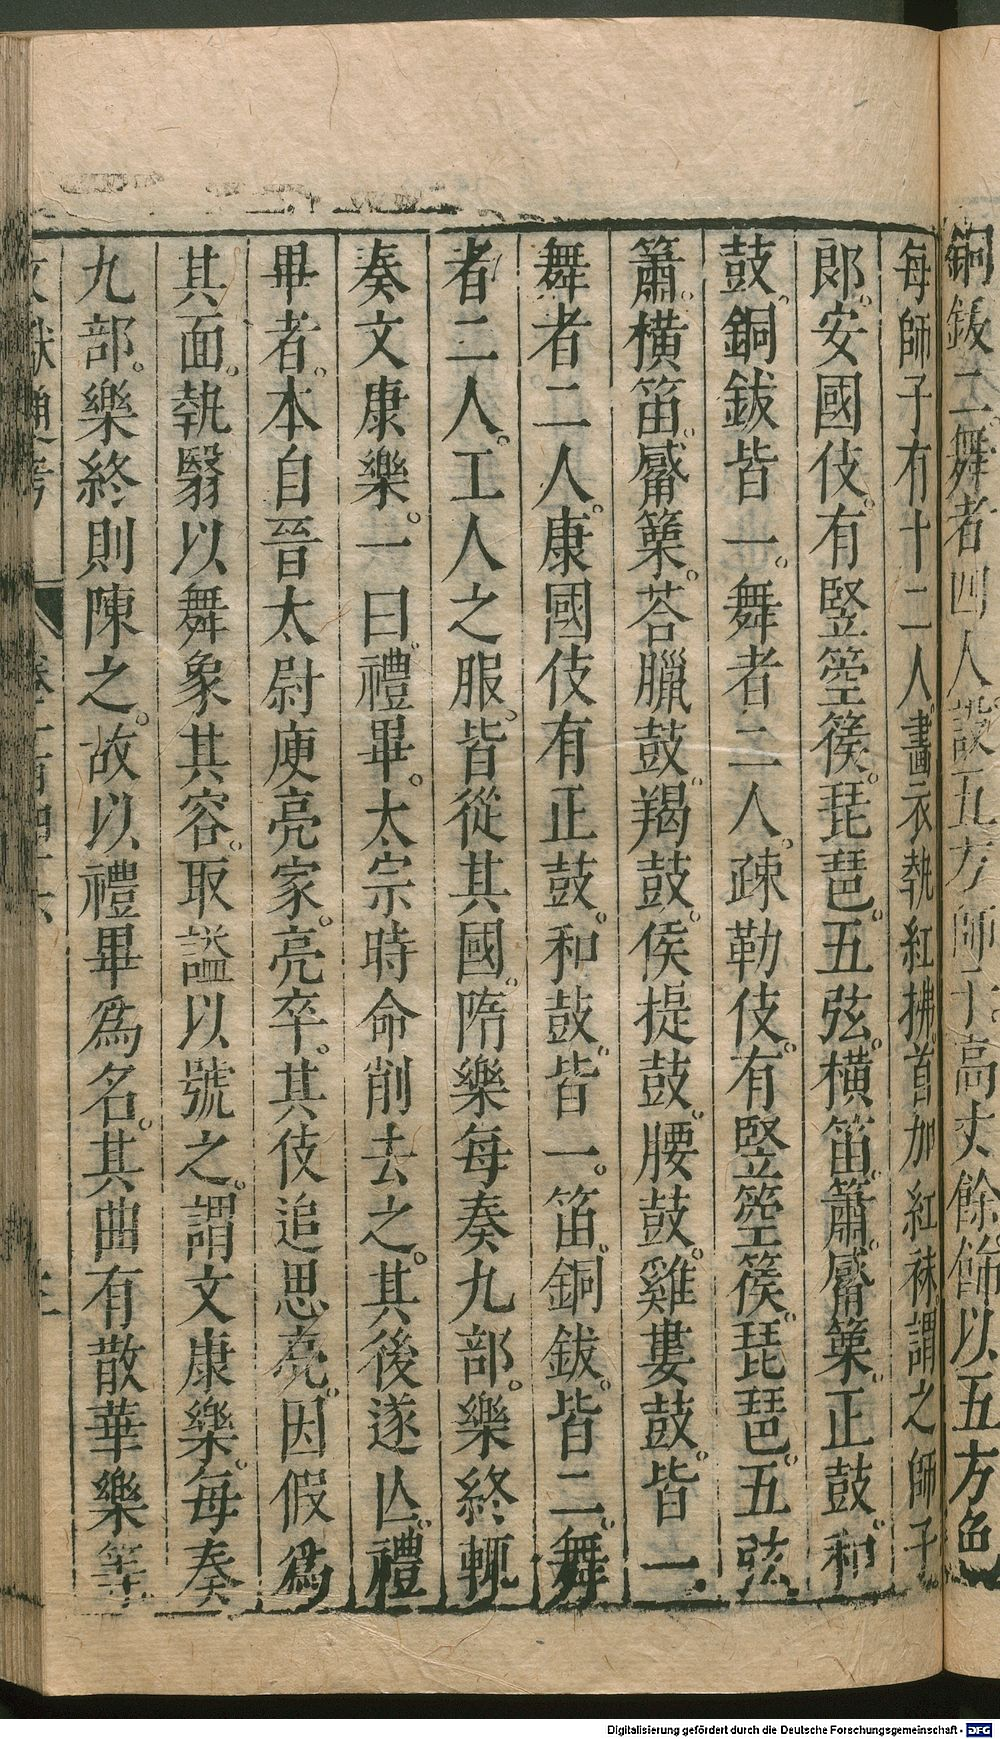 銅鈸二舞者四人設五方師子高丈餘飾以五方色
每師子有十二人畫衣執紅拂首加紅袜謂之師子
郎安國伎有竪箜篌琵琶五弦橫笛簫觱篥正鼓和
鼓銅鈸皆一舞者二人疎勒伎有竪箜篌琵琶五弦
簫橫笛觱篥荅臘鼓羯鼓侯提鼓腰鼓雞婁鼓皆一
舞者二人康國伎有正鼓和鼓皆一笛銅鈸皆二舞
者二人工人之服皆從其國隋樂每奏九部樂終輒
奏文康樂一曰禮畢太宗時命削去之其後遂亾禮
畢者本自晉太尉庾亮家亮卒其伎追思亮因假爲
其面執翳以舞象其容取謚以號之謂文康樂每奏
九部樂終則陳之故以禮畢爲名其曲有散華樂等
文獻通考 卷一百四十六
Digitalisierung gefördert durch die Deutsche Forschungsgemeinschaft - DFG